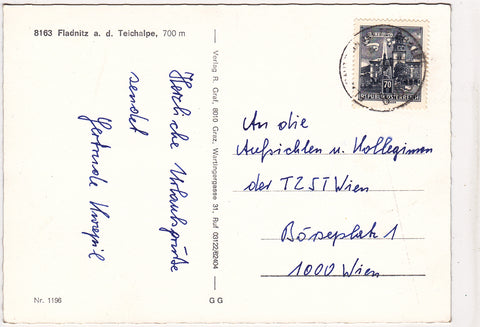 8163 Fladnitz a. d. Teichalpe, 700 m
Herzliche Urlaubsgrüße
sendet
Gertrude
Nr. 1196
Verlag R. Graf, 8010 Graz, Wartingergasse 31, Ruf 03122/82404
G G
70
REPUBLIK ÖSTERREICH
An die
Aufsichten u. Kolleginnen
der TZST Wien
Börseplatz 1
1000 Wien